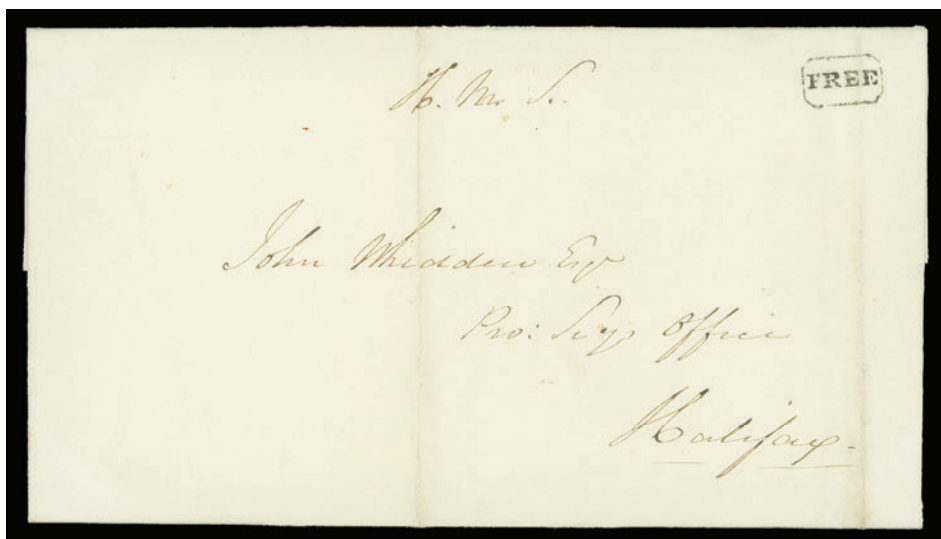 FREE
H. M. S.
John Whidden Esqr
Pro: Secys Office
Halifax.